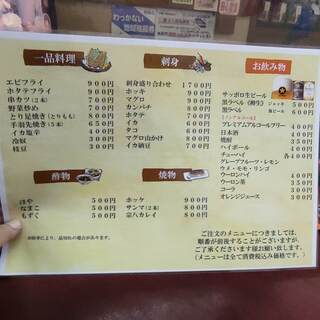 わっかない
一品料理
エビフライ 900円
ホタテフライ 900円
串カツ(2本) 700円
野菜炒め 700円
とり足焼き(とりもも) 800円
手羽先焼き(5本) 650円
イカ塩辛 400円
冷奴 300円
枝豆 300円
刺身
刺身盛り合わせ 1700円
ホッキ 900円
マグロ 900円
カンパチ 900円
ホタテ 700円
イカ 600円
タコ 600円
マグロ山かけ 800円
イカ納豆 700円
お飲み物
サッポロ生ビール
黒ラベル(樽生) ジョッキ 500円
黒ラベル 缶ビール 600円
[ノンアルコール]
プレミアムアルコールフリー 400円
日本酒 400円
焼酎 400円
ハイボール 400円
チューハイ 各400円
グレープフルーツ・レモン
ウメ・モモ・リンゴ
ウーロンハイ 400円
ウーロン茶 350円
コーラ 300円
オレンジジュース 300円
酢物
ほや 500円
なまこ 500円
もずく 500円
焼物
ホッケ 900円
サンマ(2本) 800円
宗八カレイ 800円
※時季により、品切れの場合があります。
ご注文のメニューにつきましては、
順番が前後することがございますが、
ご了承くださいます様お願い致します。
(メニューは全て消費税込み価格です。)